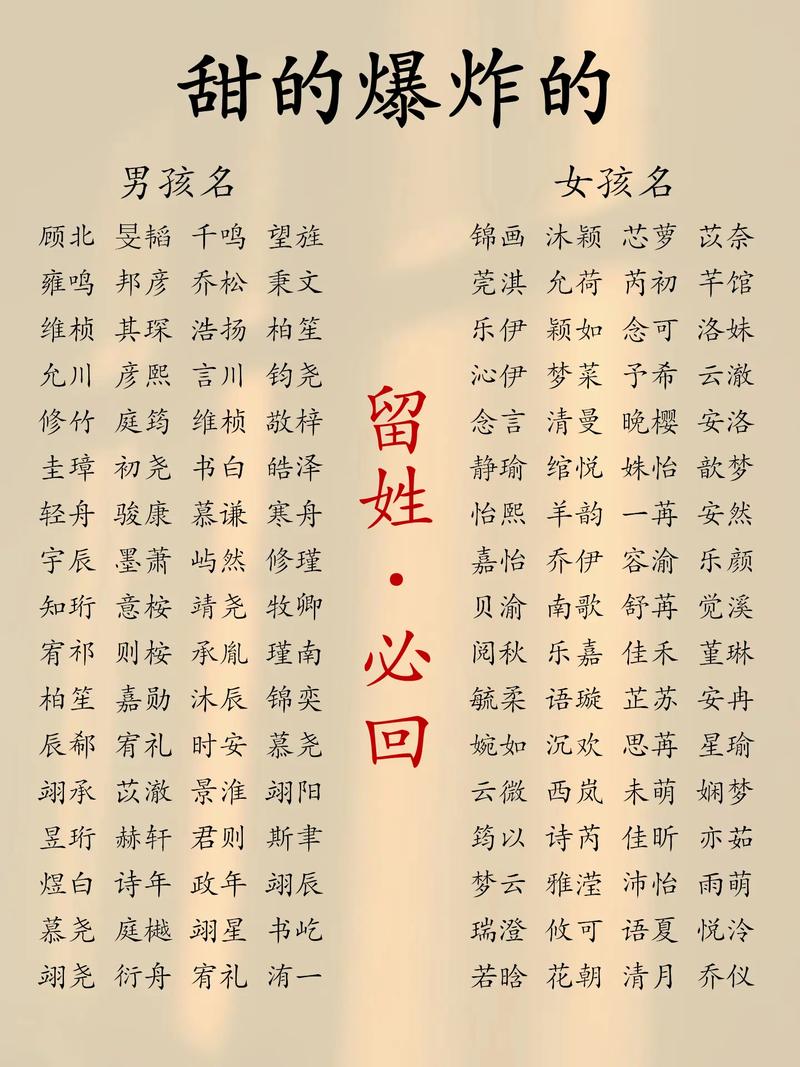 甜的爆炸的
男孩名
顾北 旻韬 千鸣 望旌
雍鸣 邦彦 乔松 秉文
维桢 其琛 浩扬 柏笙
允川 彦熙 言川 钧尧
修竹 庭筠 维桢 敬梓
圭璋 初尧 书白 皓泽
轻舟 骏康 慕谦 寒舟
宇辰 墨萧 屿然 修瑾
知珩 意桉 靖尧 牧卿
宥祁 则桉 承胤 瑾南
柏笙 嘉勋 沐辰 锦奕
辰郗 宥礼 时安 慕尧
翊承 苡澈 景淮 翊阳
昱珩 赫轩 君则 斯聿
煜白 诗年 政年 翊辰
慕尧 庭樾 翊星 书屹
翊尧 衍舟 宥礼 洧一
留姓·必回
女孩名
锦画 沐颖 芯萝 苡奈
莞淇 允荷 芮初 芊馆
乐伊 颖如 念可 洛妹
沁伊 梦菜 予希 云澈
念言 清曼 晚樱 安洛
静瑜 绾悦 姝怡 歆梦
怡熙 羊韵 一苒 安然
嘉怡 乔伊 容渝 乐颜
贝渝 南歌 舒苒 觉溪
阅秋 乐嘉 佳禾 堇琳
毓柔 语璇 芷苏 安冉
婉如 沉欢 思苒 星瑜
云微 西岚 未萌 娴梦
筠以 诗芮 佳昕 亦茹
梦云 雅滢 沛怡 雨萌
瑞澄 攸可 语夏 悦泠
若晗 花朝 清月 乔仪